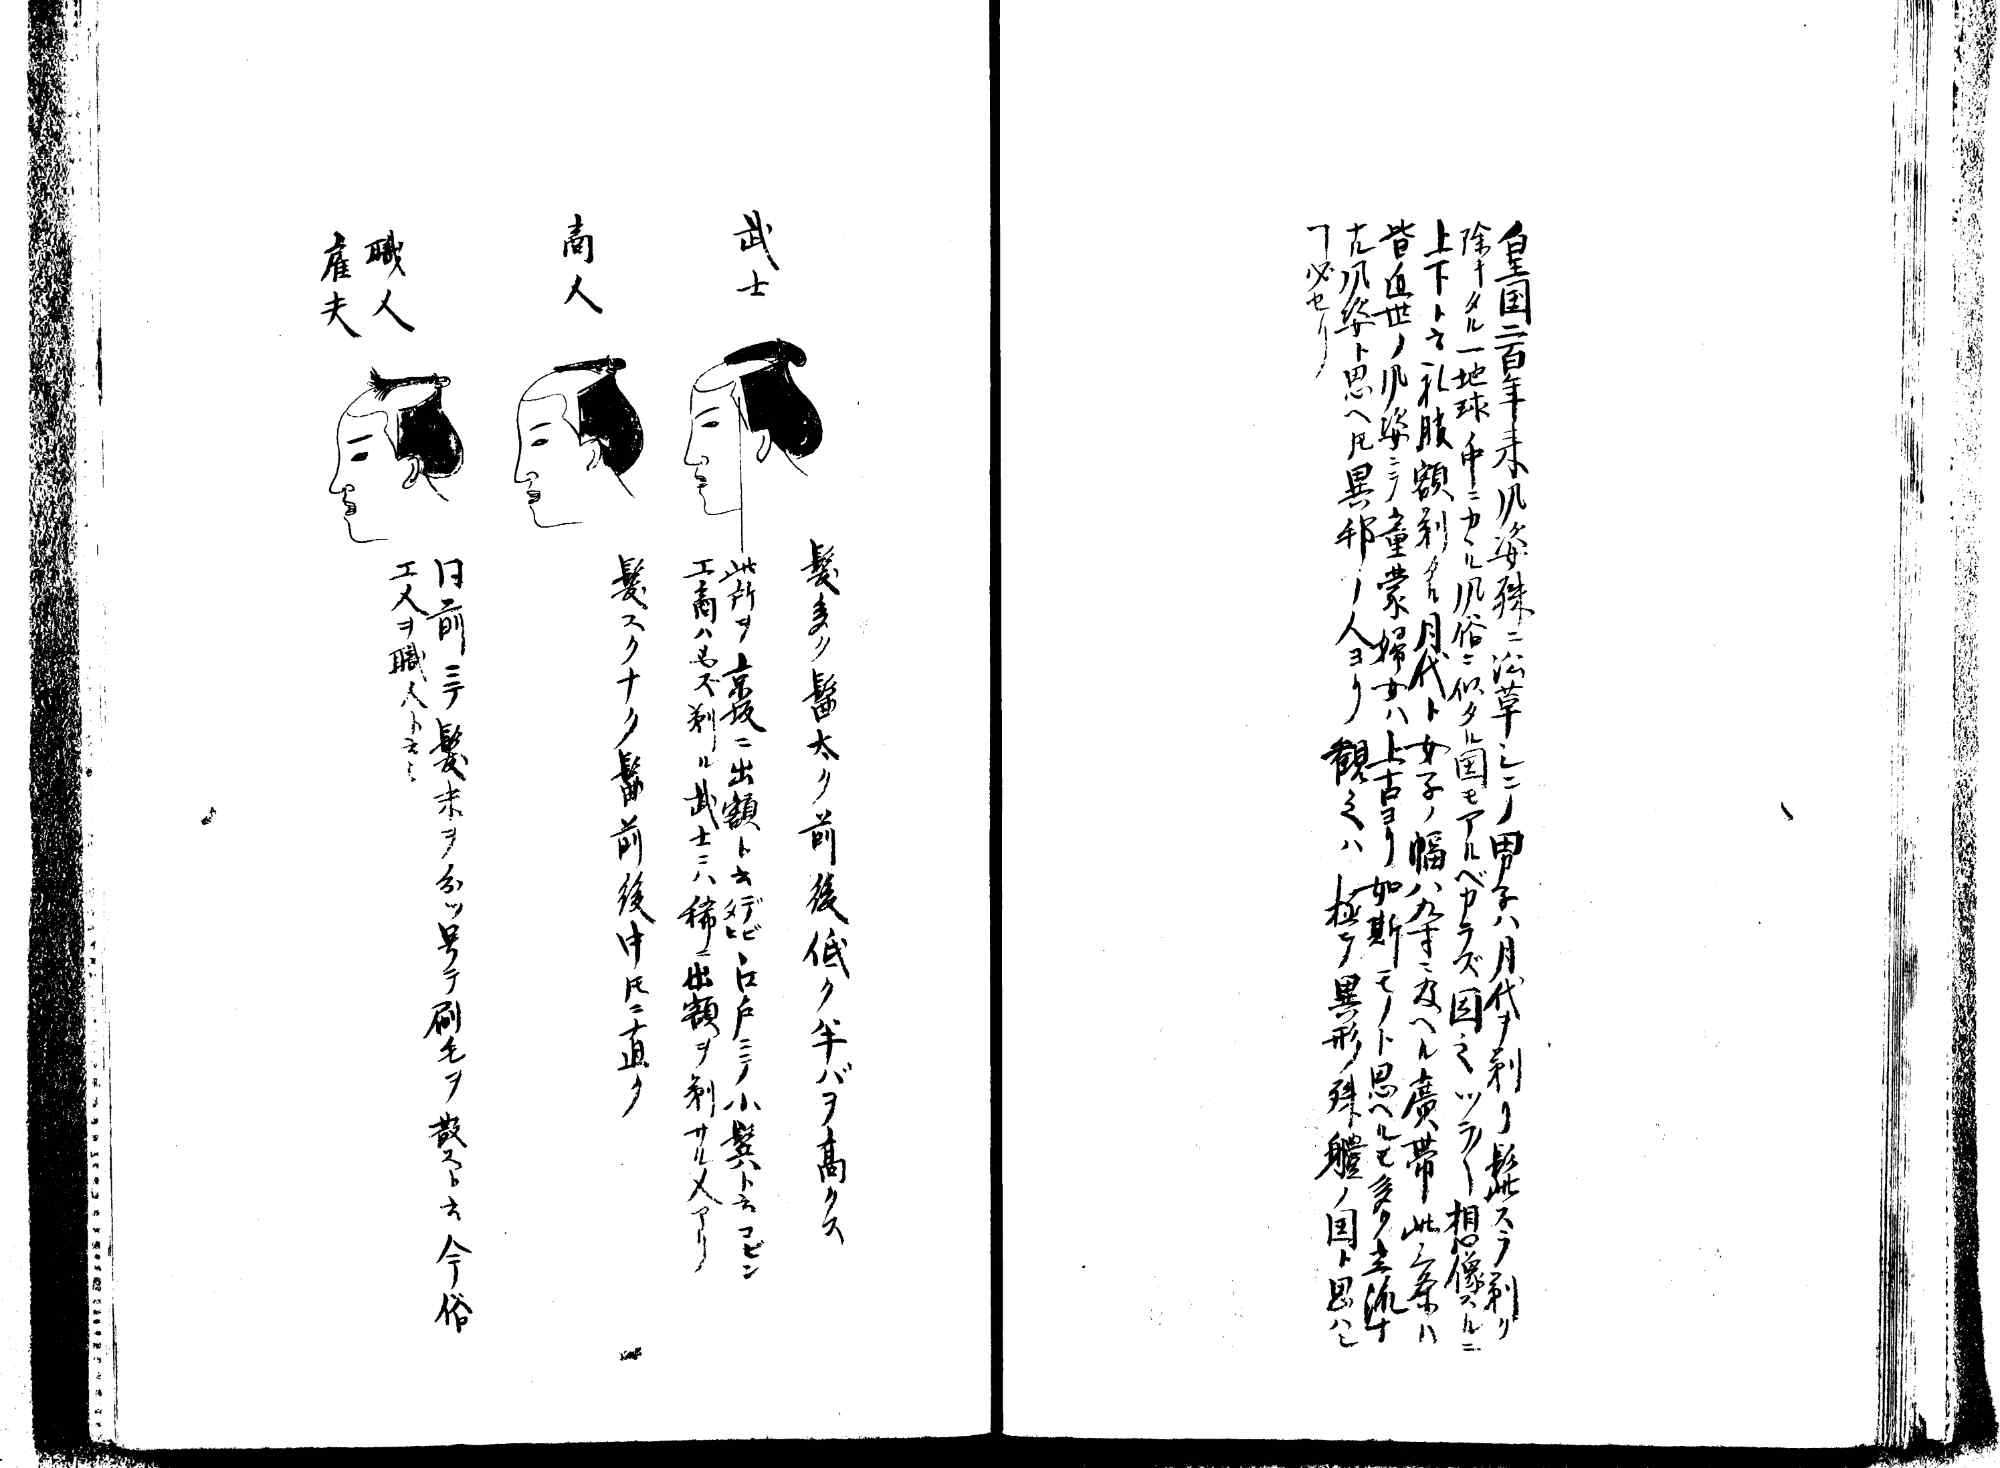 皇国二百年来風姿殊ニ沿革シテ男子ハ月代ヲ剃リ髭スラ剃リ
除キタル一地球中ニカヽル風俗ニ似タル国モアルベカラズ因之ツラ〳〵想像スルニ
上下ト云礼服額剃タル月代ト女子ノ幅八九寸ニ及ベル廣帯此三条ハ
皆近世ノ風姿ニテ童蒙婦女ハ上古ヨリ如斯モノト思ヘルモ多ク
古風姿ト思ヘ𪜈異邦ノ人ヨリ観之ハ極テ異形ノ殊體ノ国ト思ハン
ヿ必セリ
武士
髪多ク髷太ク前後低ク半バヲ高クス
此所ヲ京坂ニ出額ト云デビタヒ江戸ニテ小鬂ト云コビン
工商ハ必ズ剃ル武士ニハ稀ニ出額ヲ剃サル人アリ
商人
髪スクナク髷前後中𪜈ニ直ク
職人
雇夫
同前ニテ髪末ヲ分ツ号テ刷毛ヲ散スト云今俗
工人ヲ職人ト云